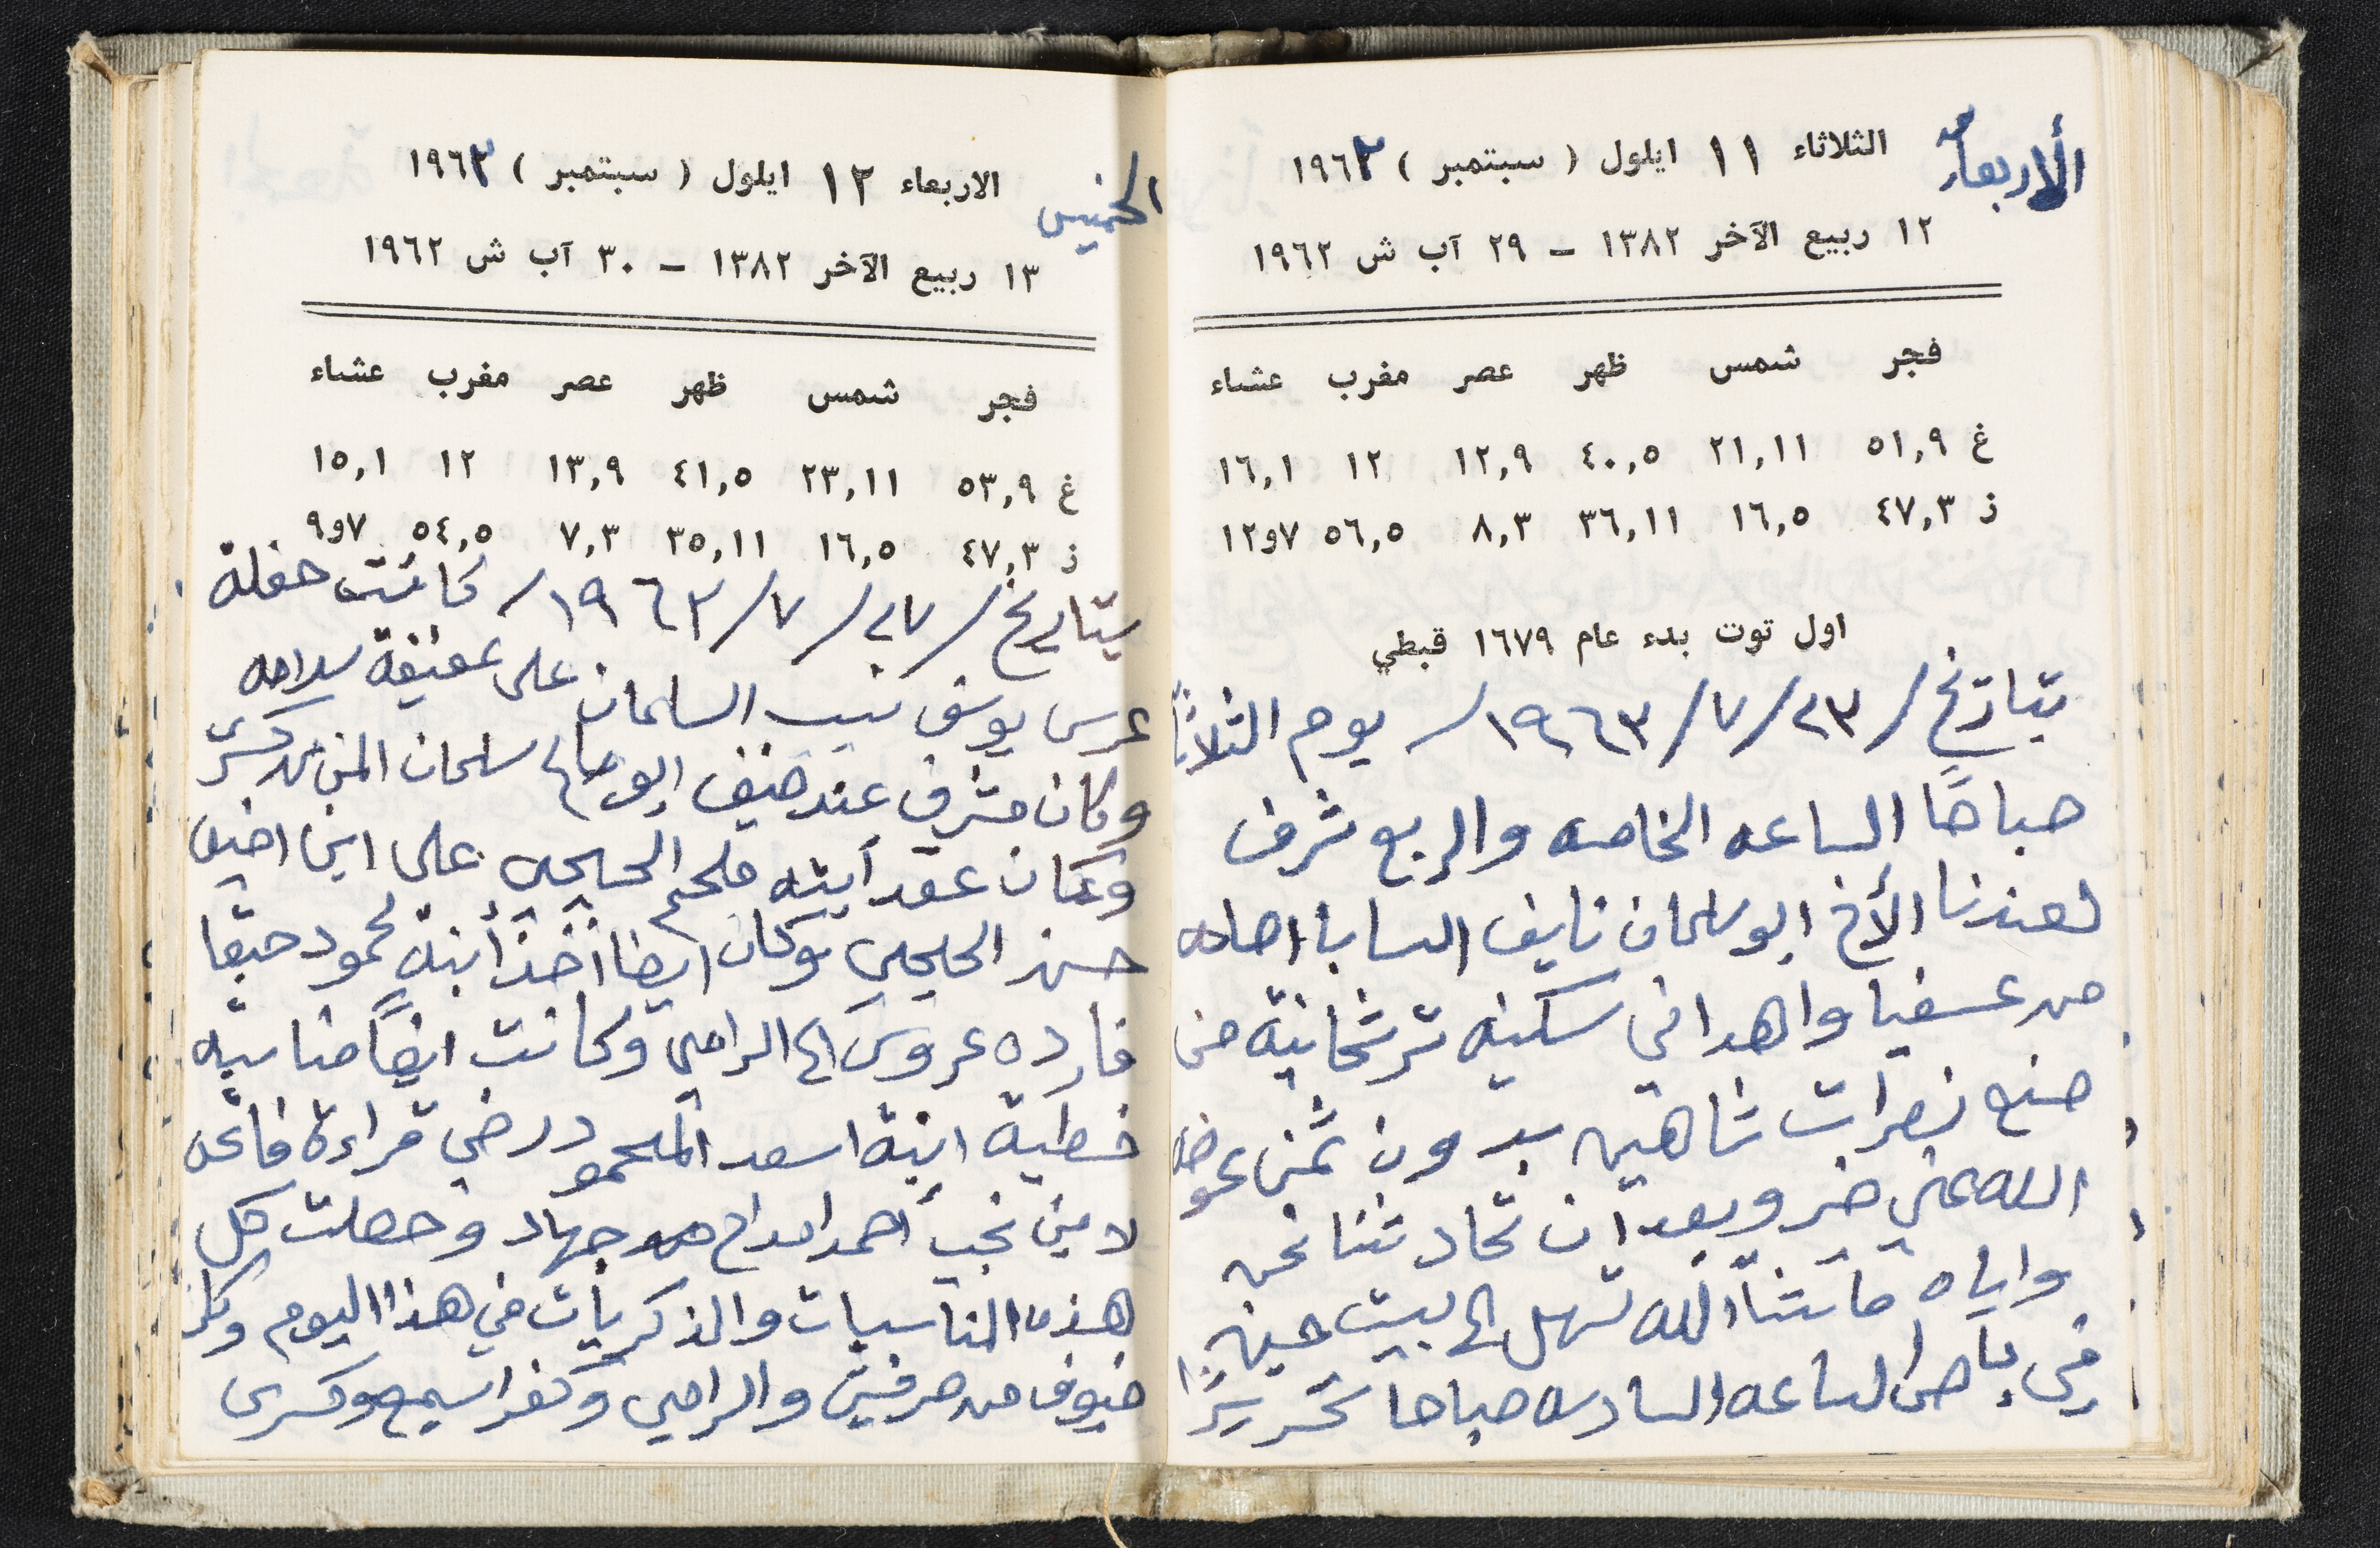 الأربعاء
الثلاثاء ١١ ايلول ( سبتمبر ) ١٩٦٣
١٢ ربيع الآخر ١٣٨٢ – ٢٩ آب ش ١٩٦٢
فجر شمس ظهر عصر مغرب عشاء
غ ٥١,٩ ٢١,١١ ٤٠,٥ ١٢,٩ ١٢ ١٦,١
ز ٤٧,٣ ١٦,٥ ٣٦,١١ ٨,٣ ٥٦,٥ ١٢و٧
اول توت بدء عام ١٦٧٩ قبطي
بتارتخ / ٢٣ / ٧ / ١٩٦٣ / يوم الثلاثآ
صباحًا الساعه الخامسه والربع شرف
لعندنا الأخ ابو سلمان نايف السابا اصله
من عسفيا واهداني سكينه ترشحانية من
صنع نصرات شاهين بدون ثمن عوضه
الله عني خير وبعد ان تحادثنا نحن
واياه ما يشآء الله تسهل الى بيت جين
في باص الساعه السادسه صباحا تحريرًا
الخميس
الاربعاء ١٢ ايلول ( سبتمبر ) ١٩٦٣
١٣ ربيع الآخر ١٣٨٢ – ٣٠ آب ش ١٩٦٢
فجر شمس ظهر عصر مغرب عشاء
غ ٥٣,٩ ٢٣,١١ ٤١,٥ ١٣,٩ ١٢ ١٥,١
ز ٤٧,٣ ١٦,٥ ٣٥,١١ ٧,٣ ٥٤,٥ ٩و٧
بتاريخ / ٢٧ / ٧ / ١٩٦٣ / كانت حفلة
عرس يوسف نيب السلمان على عفيفة سلامه
وكان مشرف عند ضيف ابو صالح سلمان من كسرى
وكمان عقد ابنه ملحم الحلبي على ابن اخيه
حسن الحلبي وكان ايضا أخذ أبنة محمود حبقا
فارده عروس الى الرامي وكانت ايضًا مناسبه
خطبة ابنة اسعد المحمود رضي قراءة فاتحه
لامين نجيب أحمد امداح من جهاد وحصلت كل
هذه المناسبات والذكريات في هذا اليوم وكل
ضيوف من حرفيش والرامي وكفر اسميع وكسرى